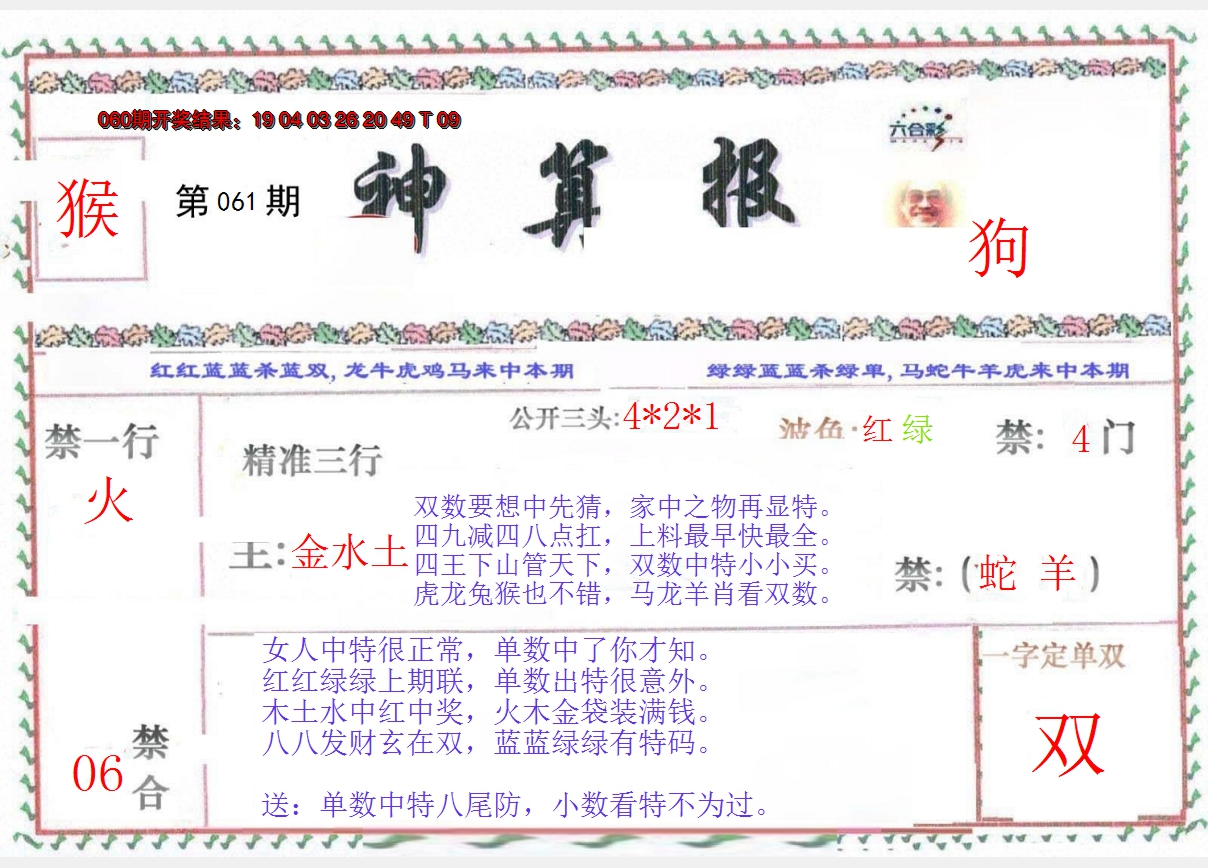 060期开奖结果：19 04 03 26 20 49 T 09
六合彩
猴
第 061 期
神算报
狗
红红蓝蓝杀蓝双,龙牛虎鸡马来中本期
绿绿蓝蓝杀绿单,马蛇牛羊虎来中本期
禁一行
火
精准三行
主:金水土
公开三头:4*2*1
波色:红 绿
禁: 4 门
双数要想中先猜，家中之物再显特。
四九减四八点扛，上料最早快最全。
四王下山管天下，双数中特小小买。
虎龙兔猴也不错，马龙羊肖看双数。
禁:(蛇 羊)
女人中特很正常，单数中了你才知。
红红绿绿上期联，单数出特很意外。
木土水中红中奖，火木金袋装满钱。
八八发财玄在双，蓝蓝绿绿有特码。
送：单数中特八尾防，小数看特不为过。
06
禁合
一字定单双
双